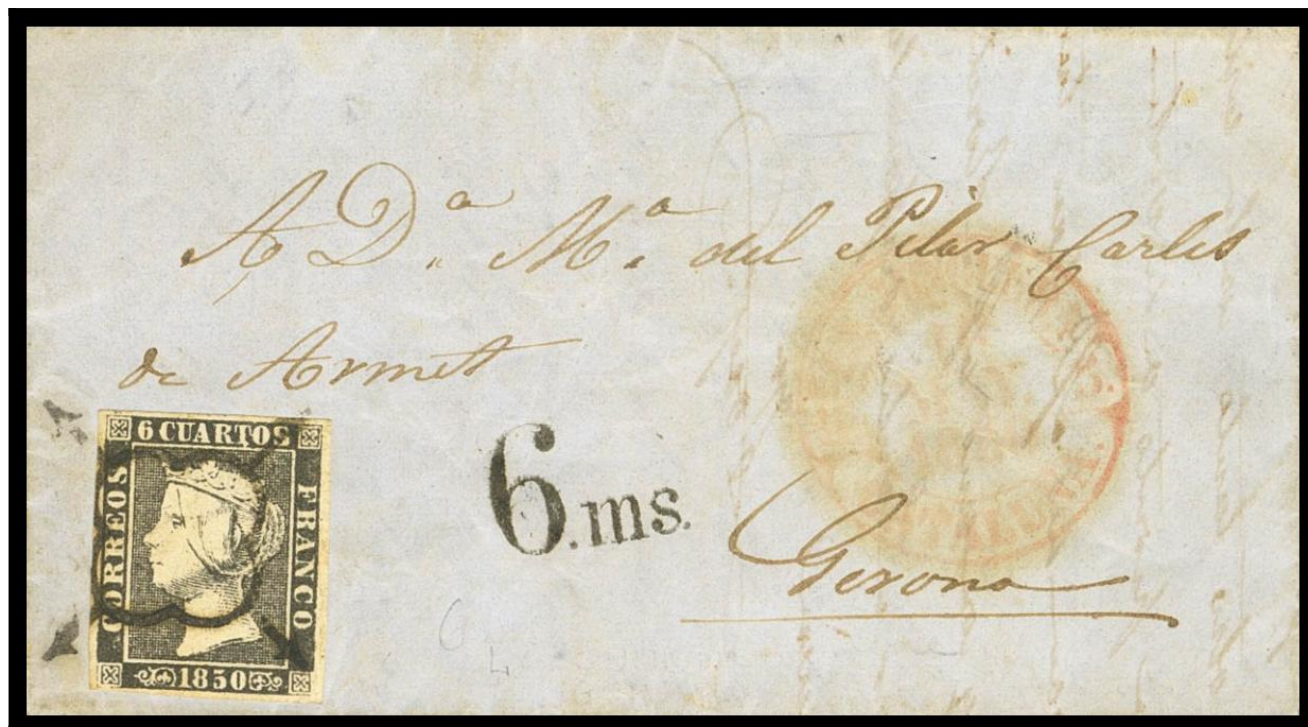 A D.ª M.ª del Pilar Carles
de Armet
6 CUARTOS
CORREOS
FRANCO
1850
6.ms.
Gerona